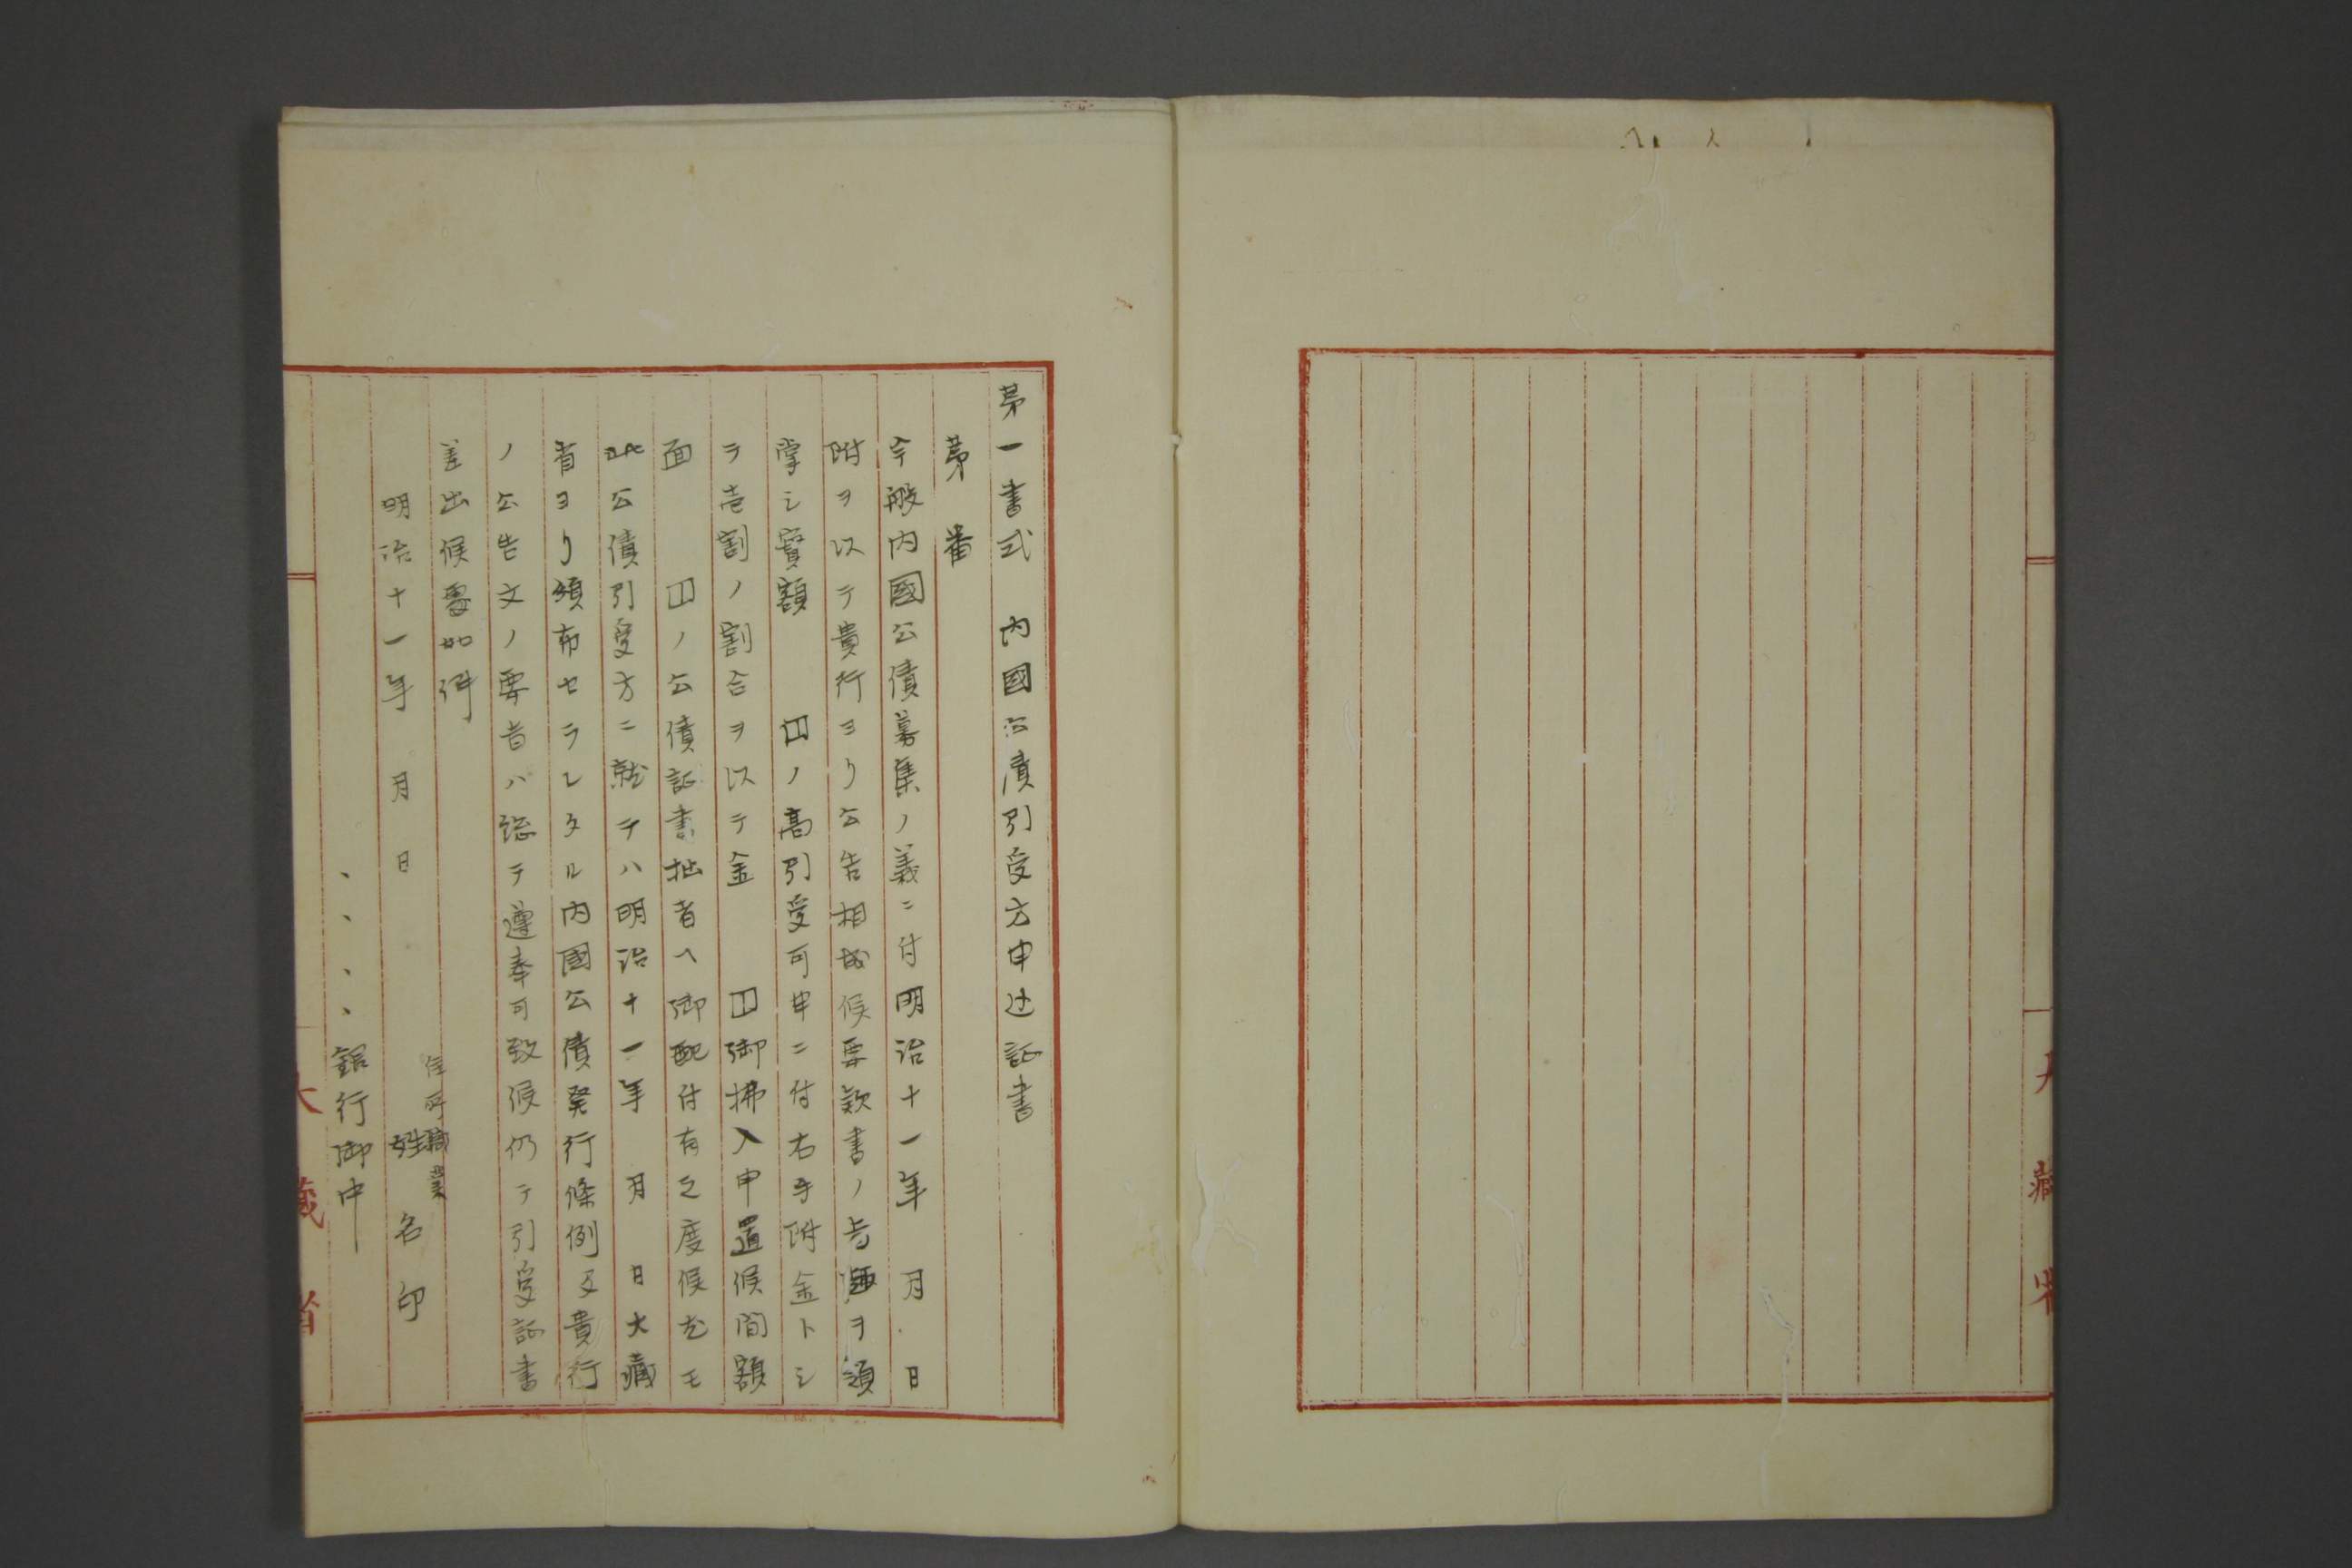 大藏省
第一書式　内國公債引受方申込証書
第　番
今般内國公債募集ノ義ニ付明治十一年　月　日
附ヲ以テ貴行ヨリ公告相成候要款書ノ旨趣ヲ領
掌シ實額　　円ノ高引受可申ニ付右手附金トシ
テ壱割ノ割合ヲ以テ金　　円御拂入申置候間額
面　　円ノ公債証書拙者ヘ御配付有之度候尤モ
此公債引受方ニ就テハ明治十一年　月　日大藏
省ヨリ頒布セラレタル内國公債発行條例及貴行
ノ公告文ノ要旨ハ総テ遵奉可致候仍テ引受証書
差出候處如件
住所職業
明治十一年　月　日　　姓　名　印
、、、、銀行御中
大藏省